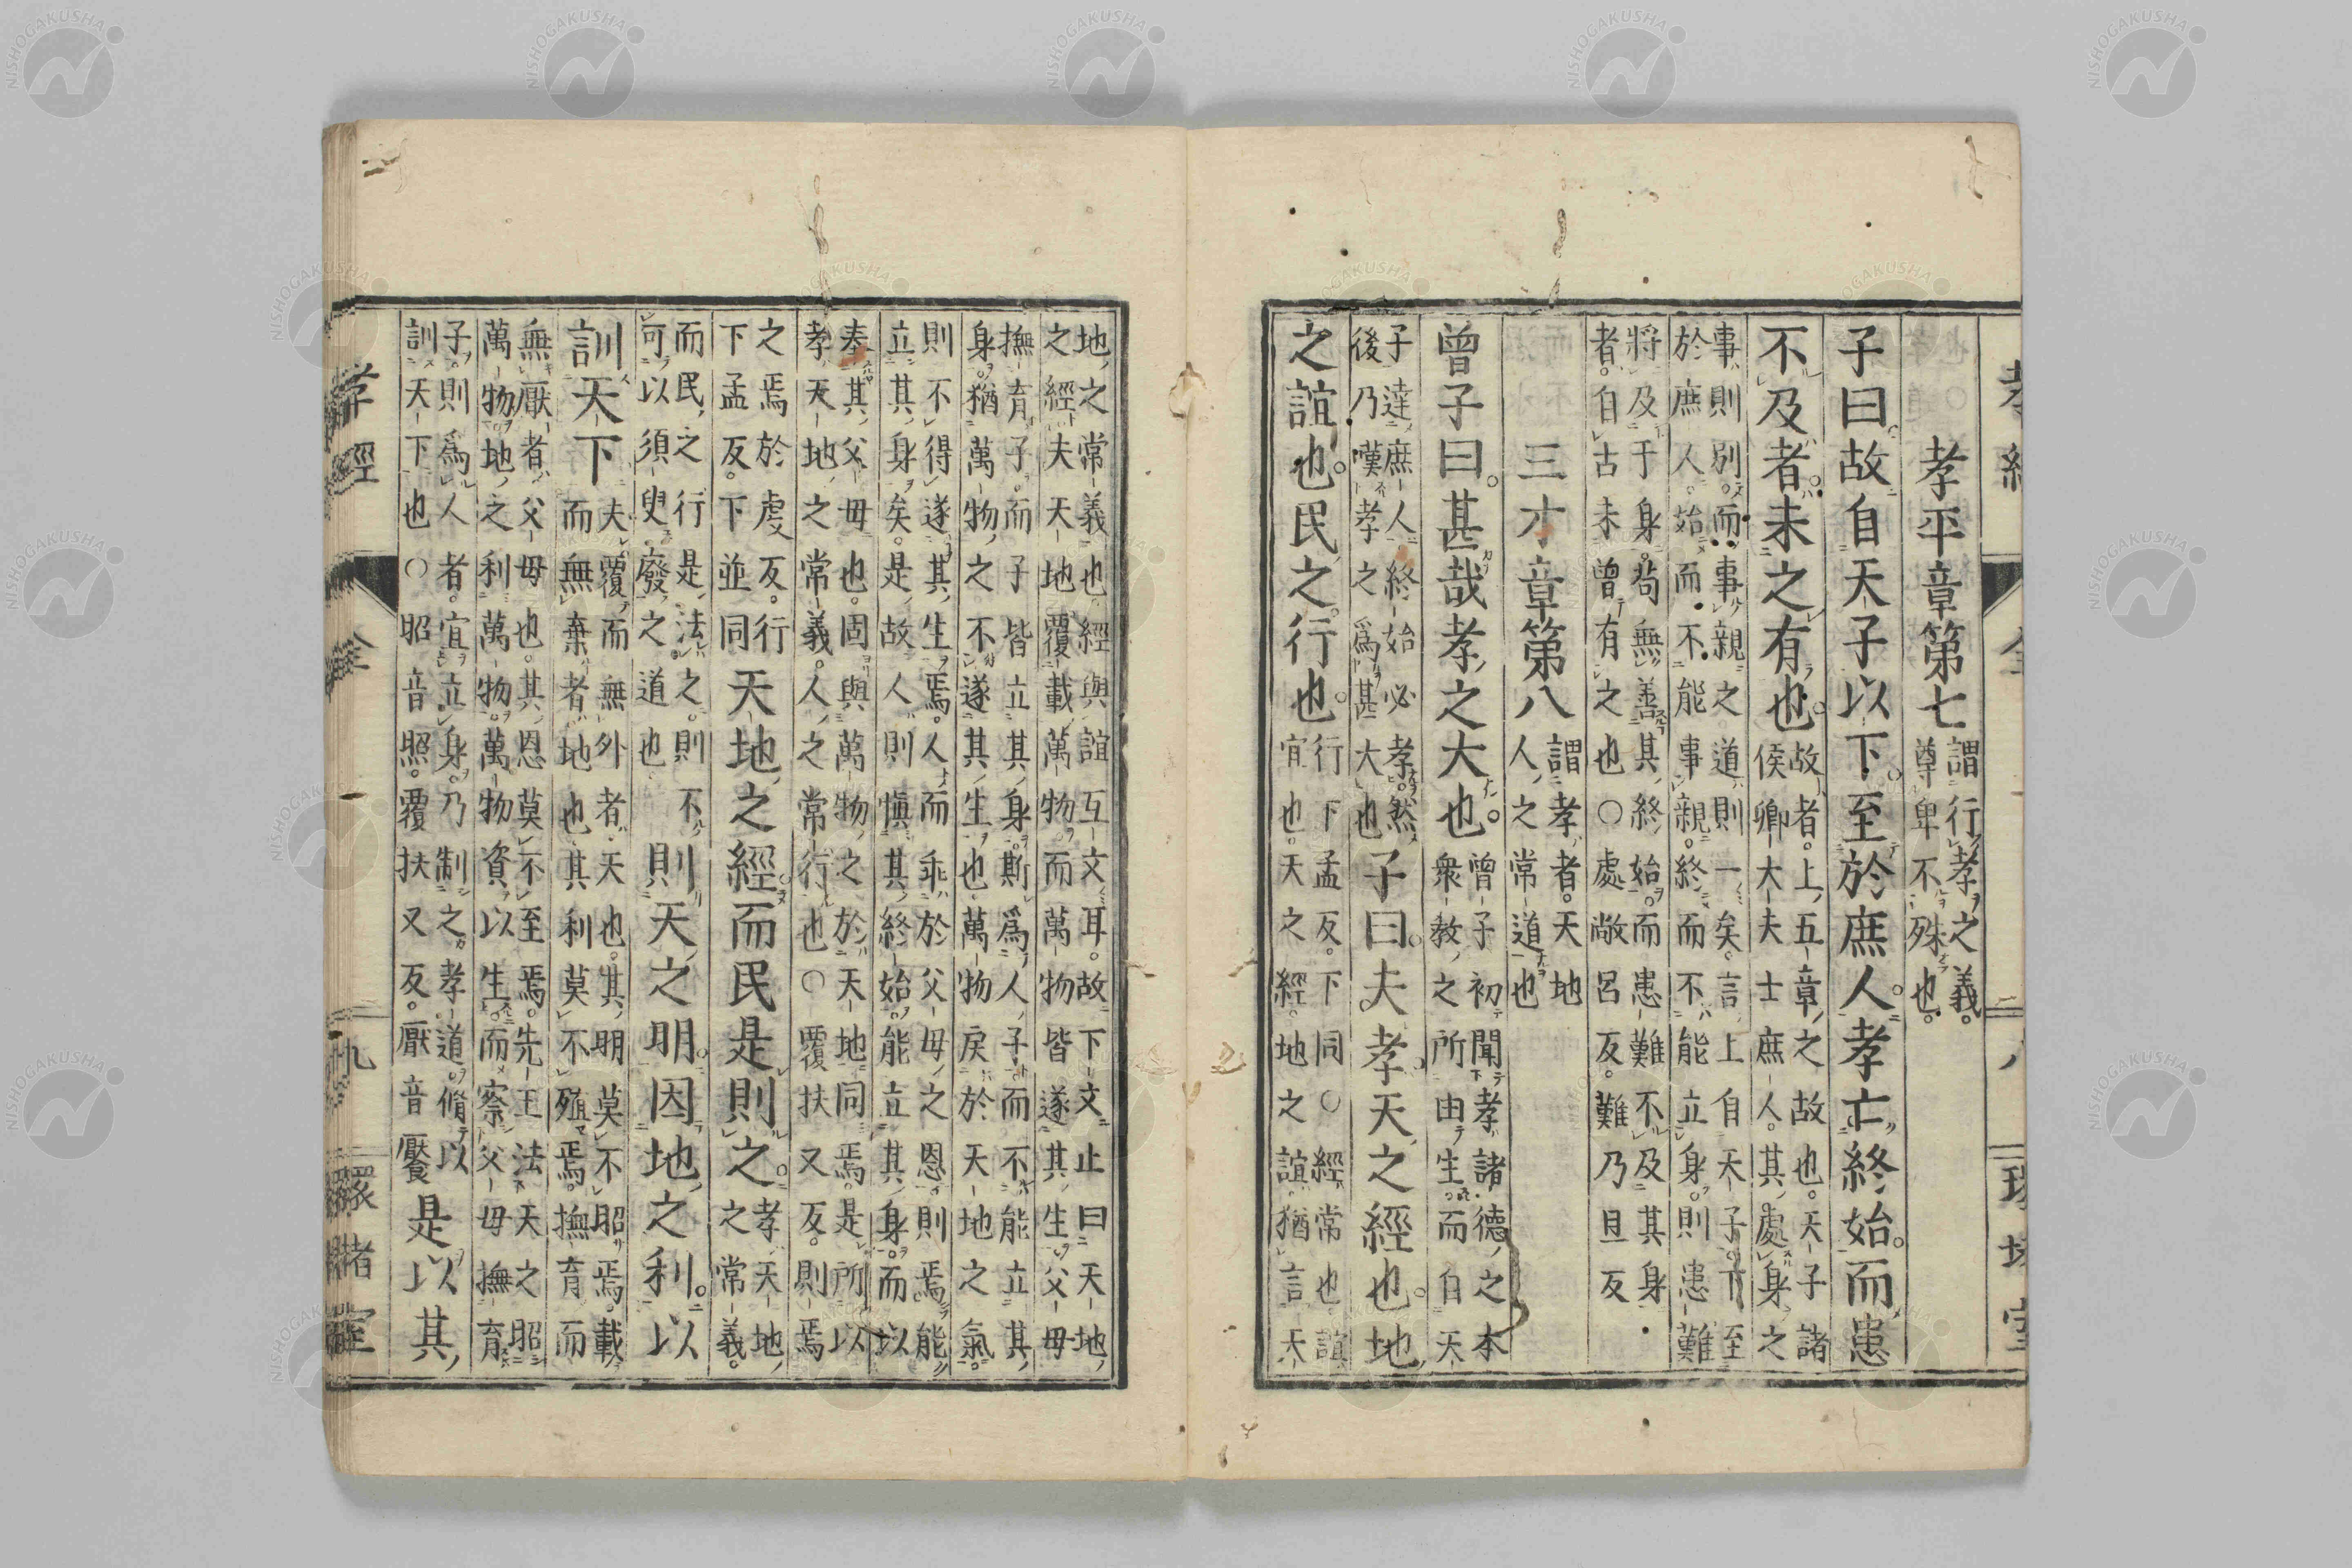 孝平章第七
謂行孝之義。
尊卑不殊也。
子曰。故自天子以下。至於庶人。孝亡終始。而患
不及者。未之有也。
故者。上五章之故也。天子諸
侯卿大夫士庶人。其處身之
事則別。而事親之道則一矣。言上自天子下至
於庶人。始而不能事親。終而不能立身。則患難
將及于身。苟無善其終始。而患難不及其身
者。自古未曾有之也○處敞呂反。難乃旦反
三才章第八
謂孝者。天地
人之常道也
曾子曰。甚哉孝之大也。
曾子初聞孝諸德之本
衆教之所由生。而自天
子達庶人終始必孝。然
後乃嘆孝之爲甚大也
子曰。夫孝天之經也。地
之誼也。民之行也。
行下孟反。下同○經常也誼
宜也。天之經。地之誼。猶言天
地之常義也經與誼互文耳。故下文止曰天地
之經夫天地覆載萬物。而萬物皆遂其生父母
撫育子。而子皆立其身。斯爲人子而不能立其
身。猶萬物之不遂其生也萬物戾於天地之氣。
則不得遂其生焉。人而乖於父母之恩則焉能
立其身矣。是故人則愼其終始。能立其身。而以
奉其父母也。固與萬物之於天地同焉。是所以
孝天地之常義。人之常行也○覆扶又反。則焉
之焉於虔反。行
下孟反。下並同
天地之經。而民是則之。
孝天地
之常義。
而民之行是法之。則不
可以須臾廢之道也
則天之明。因地之利。以
訓天下
夫覆而無外者。天也。其明莫不昭焉。載
而無棄者地也其利莫不殖焉。撫育而
無厭者父母也。其恩莫不至焉。先王法天之昭
萬物地之利萬物。萬物資以生。而察父母撫育
子。則爲人者。宜立身。乃制之孝道。脩以
訓天下也○昭音照。覆扶又反。厭音饜
是以其
孝經 全 九